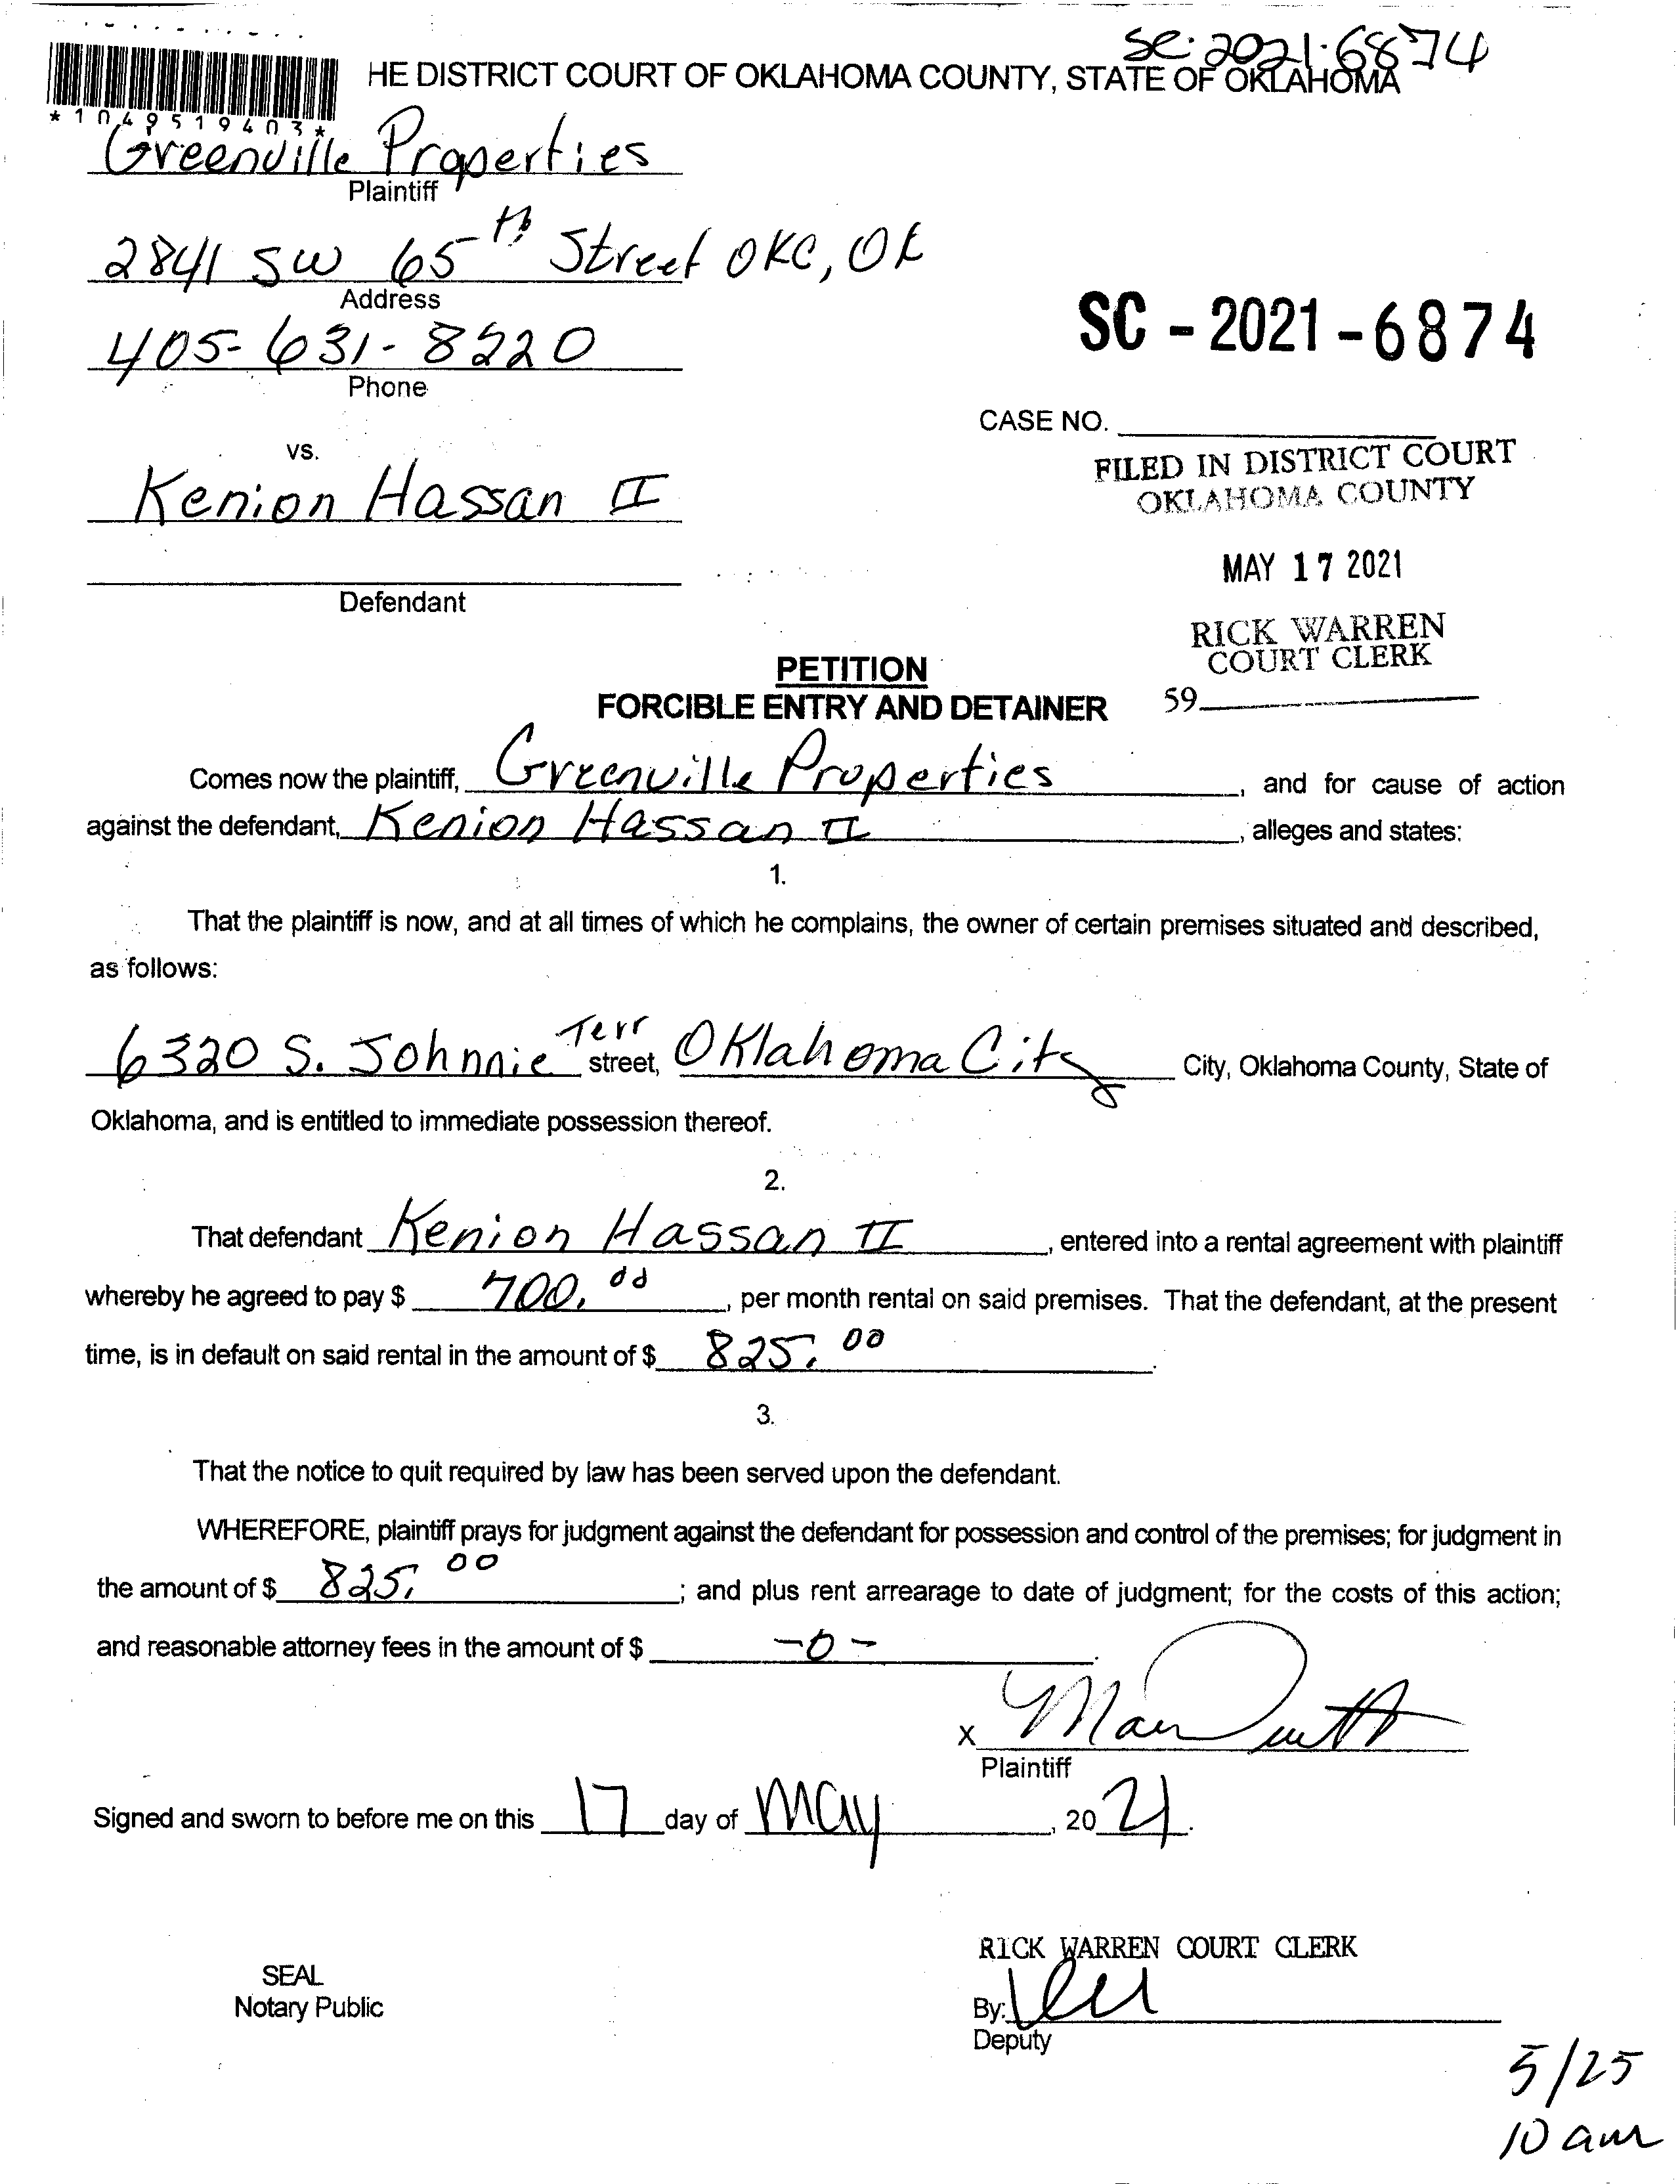 SC-2021-6874
HE DISTRICT COURT OF OKLAHOMA COUNTY, STATE OF OKLAHOMA
*1049519403*
Greenville Properties
Plaintiff
2841 SW 65th Street OKC, OK
Address
405-631-8220
Phone
SC - 2021 - 6874
CASE NO.
vs.
FILED IN DISTRICT COURT
OKLAHOMA COUNTY
Kenion Hassan II
MAY 17 2021
Defendant
RICK WARREN
COURT CLERK
59
PETITION
FORCIBLE ENTRY AND DETAINER
Comes now the plaintiff, Greenville Properties, and for cause of action
against the defendant, Kenion Hassan II, alleges and states:
1.
That the plaintiff is now, and at all times of which he complains, the owner of certain premises situated and described,
as follows:
6320 S. Johnnie Terr street, Oklahoma City City, Oklahoma County, State of
Oklahoma, and is entitled to immediate possession thereof.
2.
That defendant Kenion Hassan II, entered into a rental agreement with plaintiff
whereby he agreed to pay $ 700.00, per month rental on said premises. That the defendant, at the present
time, is in default on said rental in the amount of $ 825.00.
3.
That the notice to quit required by law has been served upon the defendant.
WHEREFORE, plaintiff prays for judgment against the defendant for possession and control of the premises; for judgment in
the amount of $ 825.00; and plus rent arrearage to date of judgment; for the costs of this action;
and reasonable attorney fees in the amount of $ -0-.
X
Plaintiff
Signed and sworn to before me on this 17 day of May, 2021.
RICK WARREN COURT CLERK
SEAL
Notary Public
By:
Deputy
5/25
10 am